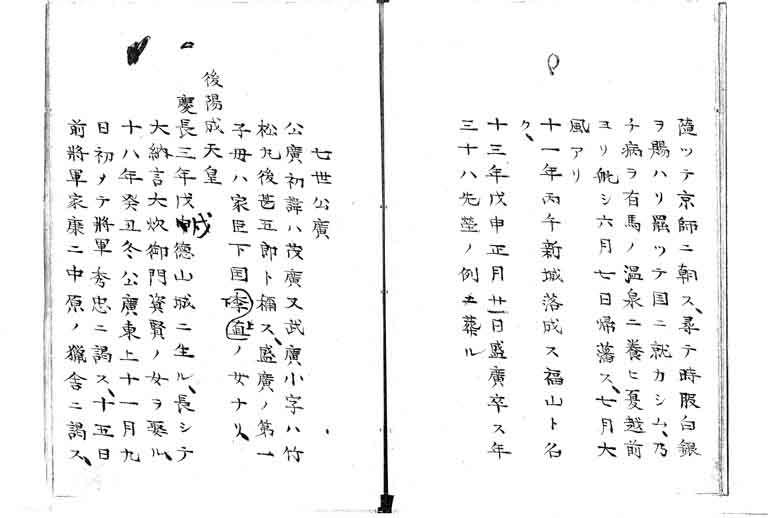 隨ツテ京師ニ朝ス、尋テ時服白銀
ヲ賜ハリ罷ツテ国ニ就カシム、乃
チ病ヲ有馬ノ温泉ニ養ヒ夏越前
ヨリ舩シ六月七日帰藩ス、七月大
風アリ
十一年丙午新城落成ス福山ト名
ク、
十三年戊申正月廿一日盛廣卒ス年
三十八先塋ノ例ニ葬ル
七世公廣
公廣初諱ハ茂廣又武廣小字ハ竹
松丸後甚五郎ト稱ス、盛廣ノ第一
子母ハ家臣下国季直ノ女ナリ、
後陽成天皇
慶長三年戊戌德山城ニ生ル、長シテ
大納言大炊御門資賢ノ女ヲ娶ル、
十八年癸丑冬公廣東上十一月九
日初メテ將軍秀忠ニ謁ス、十五日
前將軍家康ニ中原ノ獵舎ニ謁ス、